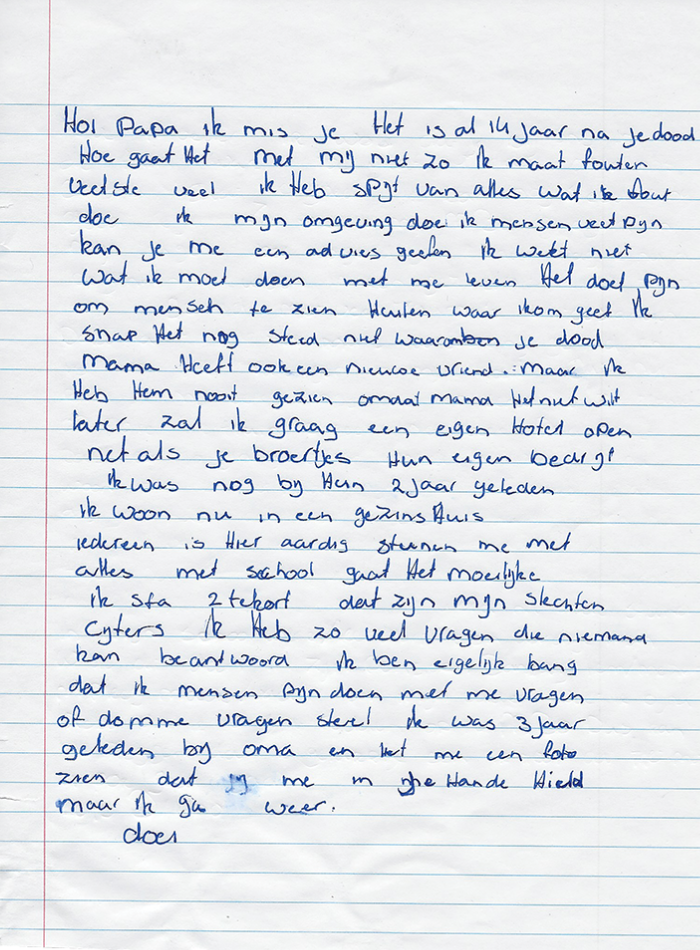 Hoi Papa ik mis je Het is al 14 jaar na je dood
Hoe gaat Het met mij niet zo ik maat fouten
veelste veel ik Heb spijt van alles wat ik fout
doe ik mijn omgeving doe ik mensen veel pijn
kan je me een advies geefen ik wekt niet
wat ik moet doen met me leven Het doet pijn
om mensen te zien Heulen waar ikom geef Ik
snap Het nog steed niet waarom je dood
mama Heeft ook een nieuwe vriend. maar ik
Heb Hem nooit gezien omdat mama Het niet wilt
later zal ik graag een eigen Hotel open
net als je broertjes Hun eigen bedrijf
ik was nog bij Hun 2 jaar geleden
ik woon nu in een gezins Huis
iedereen is Hier aardig steunen me met
alles met school gaat Het moeilijke
ik sta 2 tekort dat zijn mijn slechten
cyfers ik Heb zo veel vragen die niemand
kan beantwoord ik ben eigelijk bang
dat ik mensen pijn doen met me vragen
of domme vragen steel ik was 3 jaar
geleden bij oma en liet me een foto
zien dat jij me in je Hande Hield
maar ik ga weer.
doei